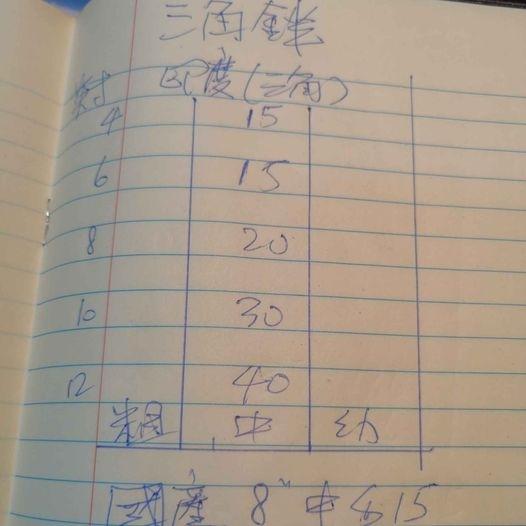 三角銼
吋 印度(三角)
4 15
6 15
8 20
10 30
12 40
粗 中 幼
國產 8" 中 $15